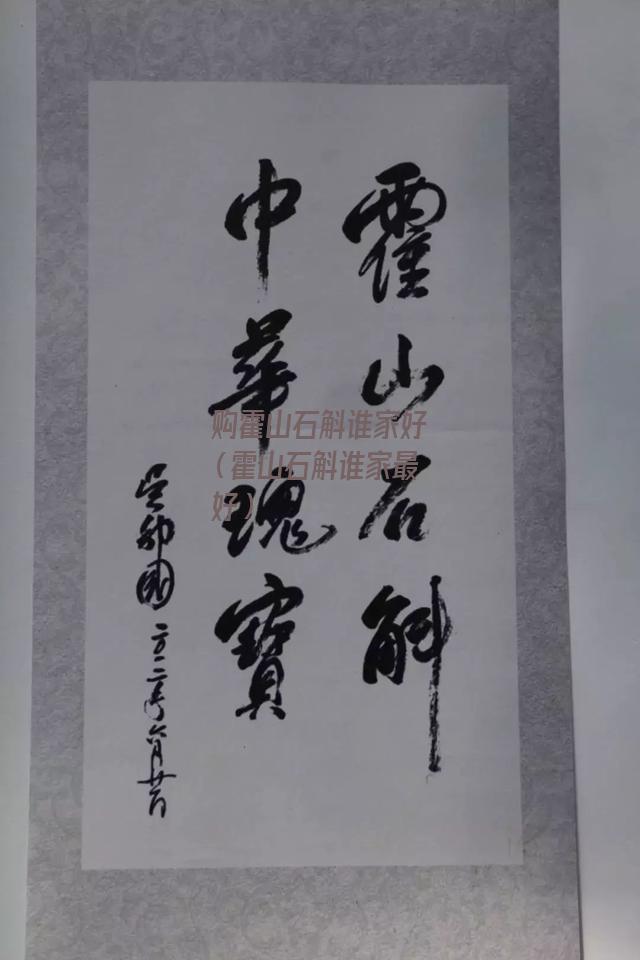 霍山石斛
中華瑰寶
吴邦國
六月廿
购霍山石斛谁家好
（霍山石斛谁家最
好）